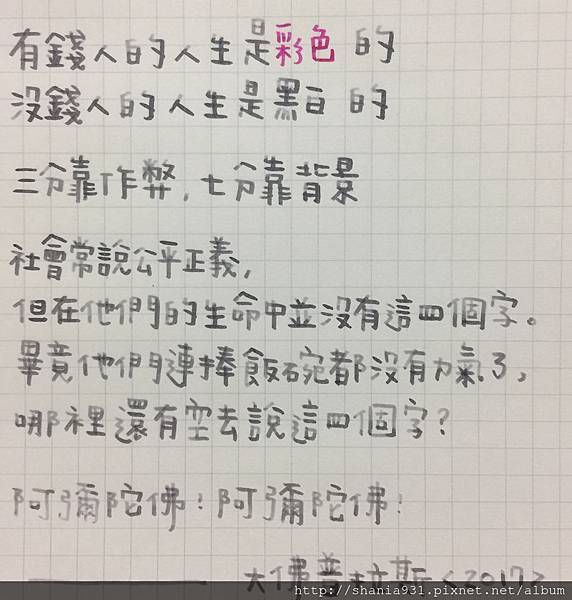 有錢人的人生是彩色的
沒錢人的人生是黑白的
三分靠作弊,七分靠背景
社會常說公平正義,
但在他們的生命中並沒有這四個字。
畢竟他們連捧飯碗都沒有力氣了,
哪裡還有空去說這四個字?
阿彌陀佛!阿彌陀佛!
大佛普拉斯<2017>
http://shania931.pixnet.net/album